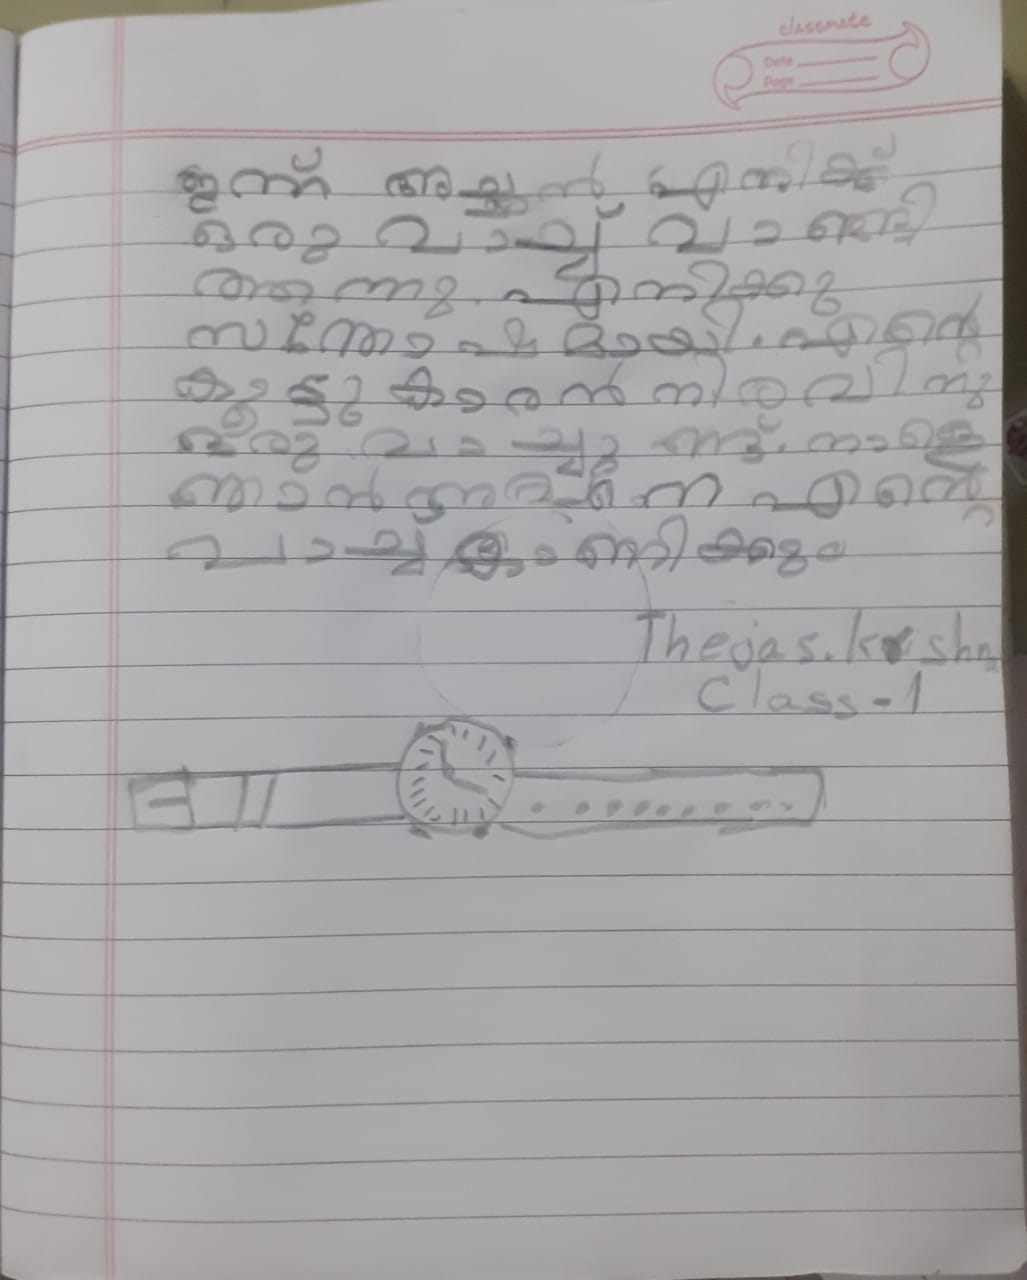 classmate
Date
Page
ഇന്ന് അച്ഛൻ എനിക്ക്
ഒരു വാച്ച് വാങ്ങി
തന്നു. എനിക്കു
സന്തോഷമായി. എന്റെ
കൂട്ടുകാരൻ നിരവിനു
ഒരു വാച്ചു ണ്ട്. നാളെ
ഞാൻ നിരവിനെ എന്റെ
വാച്ച് കാണിക്കും
Thejas.krishna
Class-1